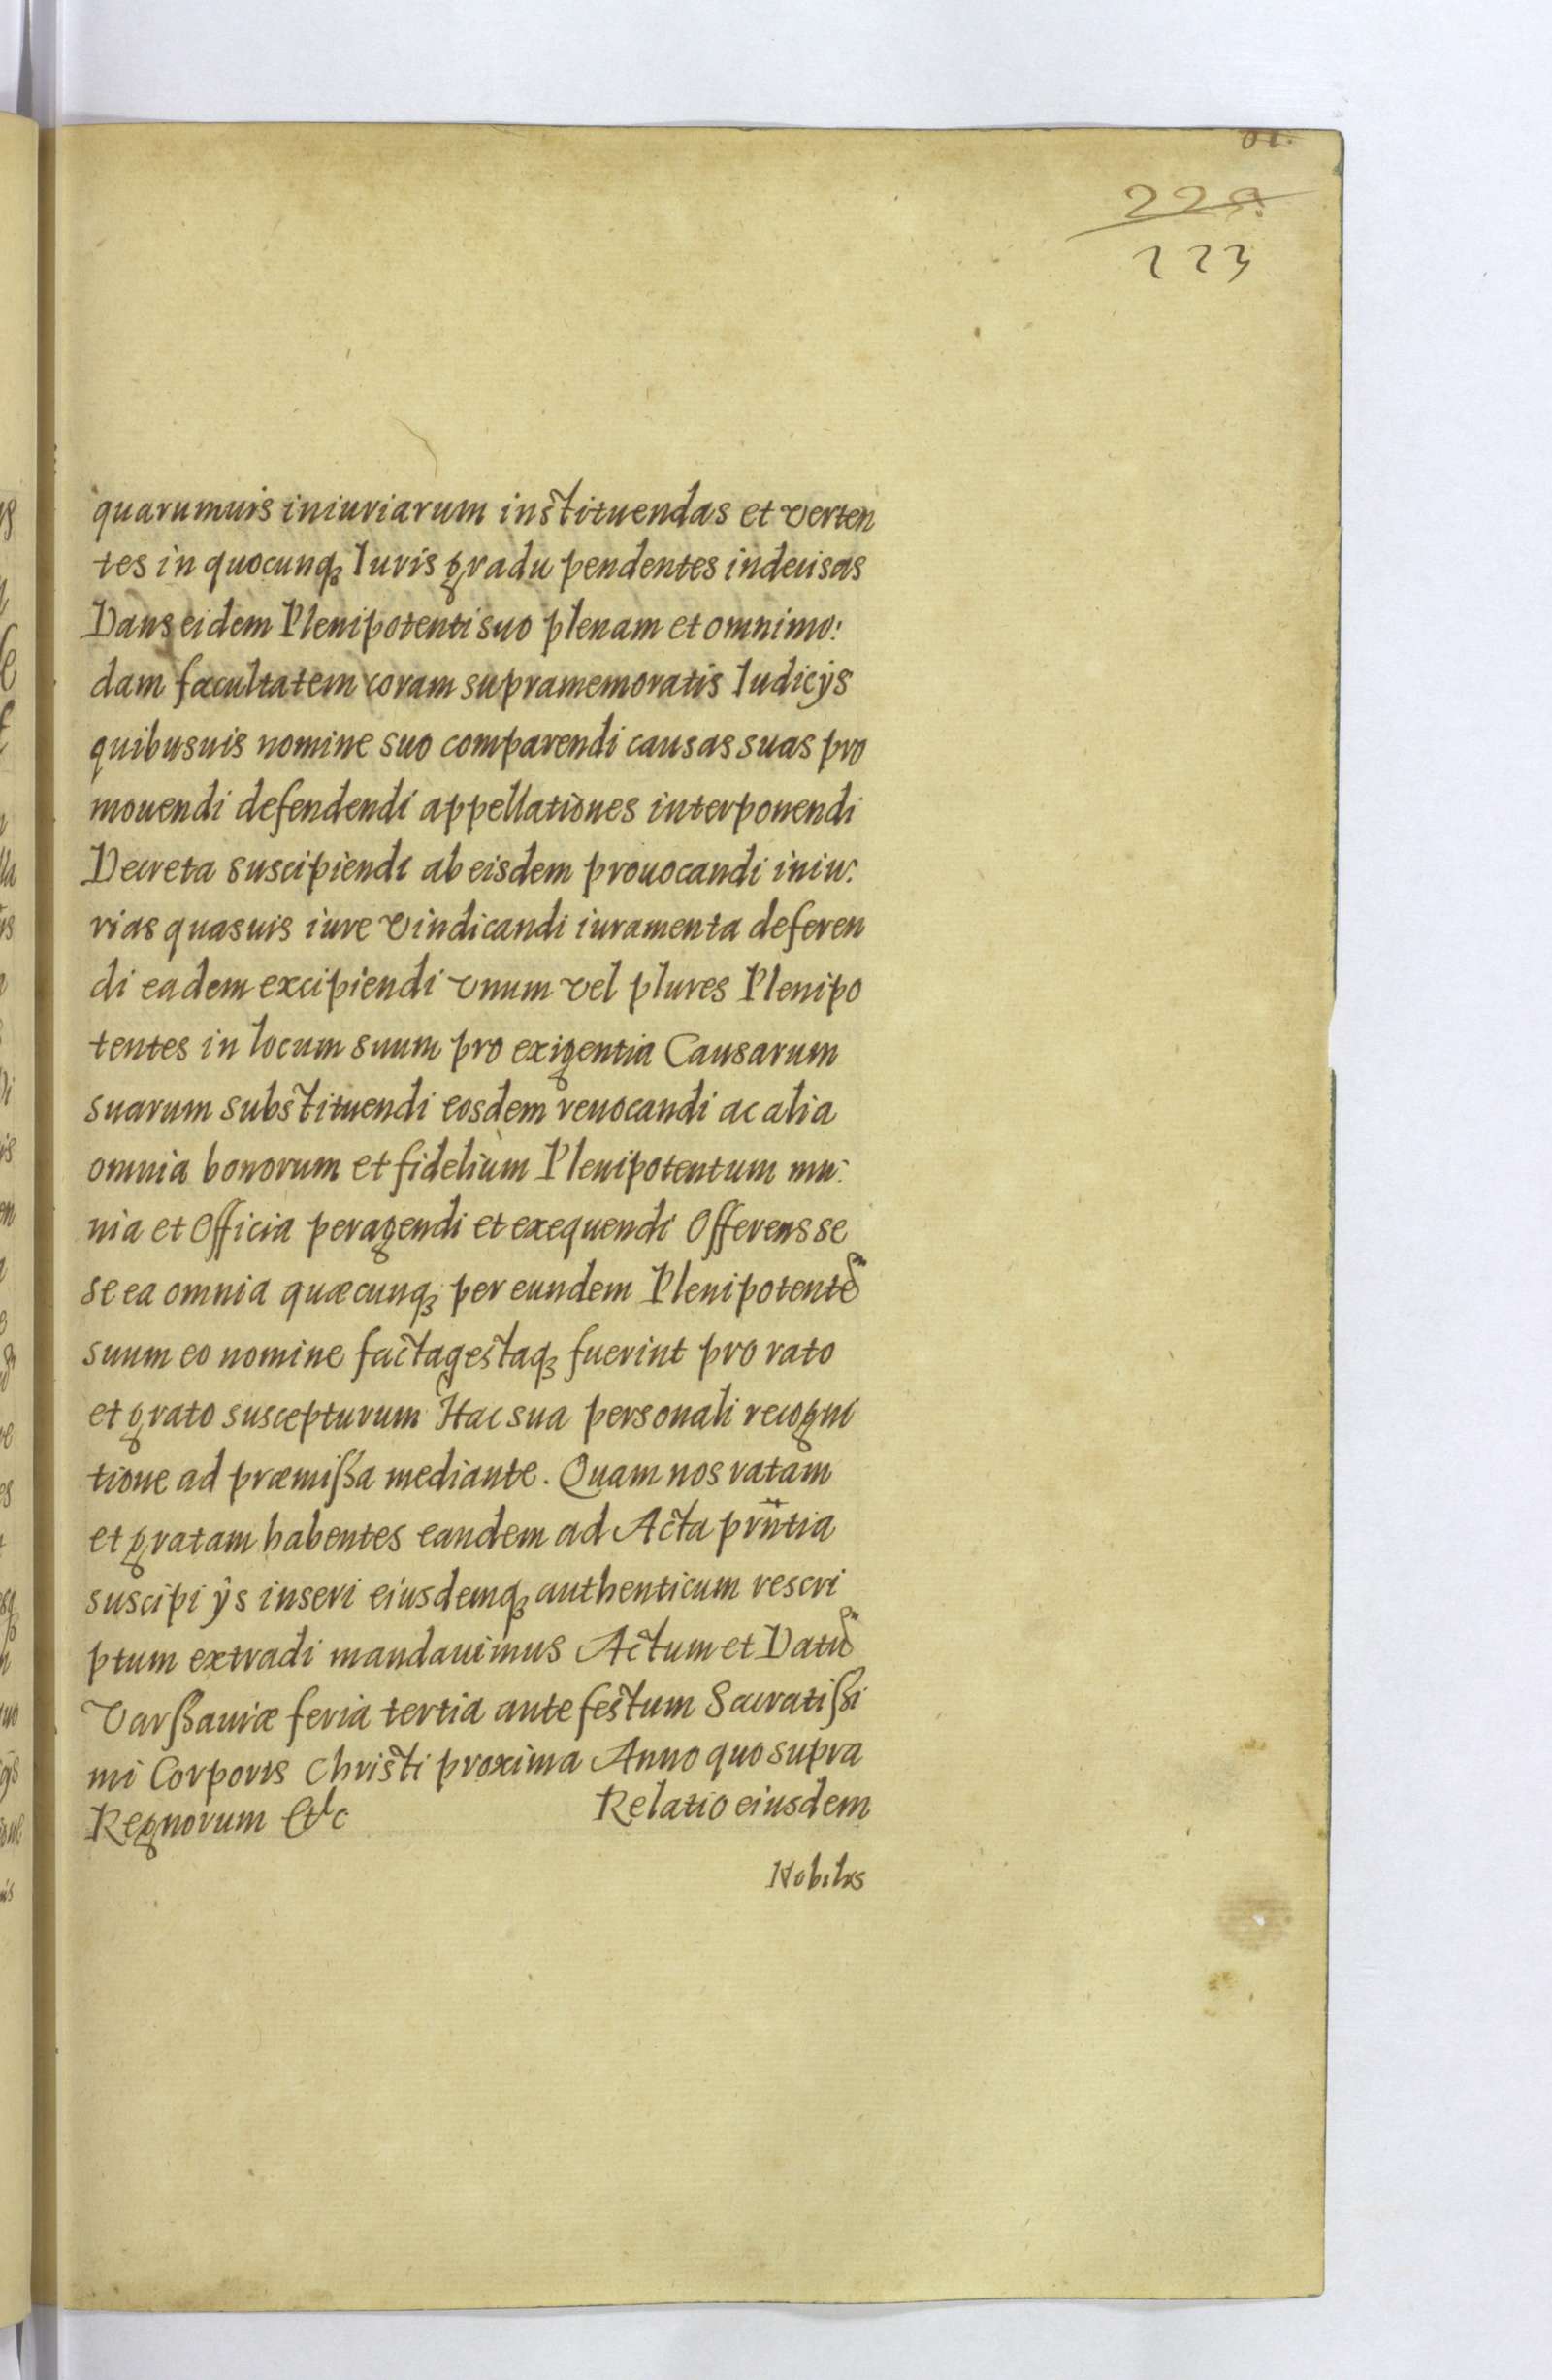 229.
223
quarumuis iniuriarum instituendas et verten
tes in quocunq; Iuris gradu pendentes indecisas
Dans eidem Plenipotenti suo plenam et omnimo:
dam facultatem coram supramemoratis Iudicÿs
quibusuis nomine suo comparendi causas suas pro
mouendi defendendi appellationes interponendi
Decreta suscipiendi ab eisdem prouocandi iniu:
rias quasuis iure vindicandi iuramenta deferen
di eadem excipiendi vnum vel plures Plenipo
tentes in locum suum pro exigentia Causarum
suarum substituendi eosdem reuocandi ac alia
omnia bonorum et fidelium Plenipotentum mu:
nia et Officia peragendi et exequendi Offerens se
se ea omnia quæcunq; per eundem Plenipotentẽ
suum eo nomine facta gestaq; fuerint pro rato
et grato suscepturum Hac sua personali recogni
tione ad præmißa mediante. Quam nos ratam
et gratam habentes eandem ad Acta prñtia
suscipi ÿs inseri eiusdemq; authenticum rescri
ptum extradi mandauimus Actum et Datũ
Varßauiæ feria tertia ante festum Sacratißi
mi Corporis Christi proxima Anno quo supra
Regnorum Etc Relatio eiusdem
Nobilis